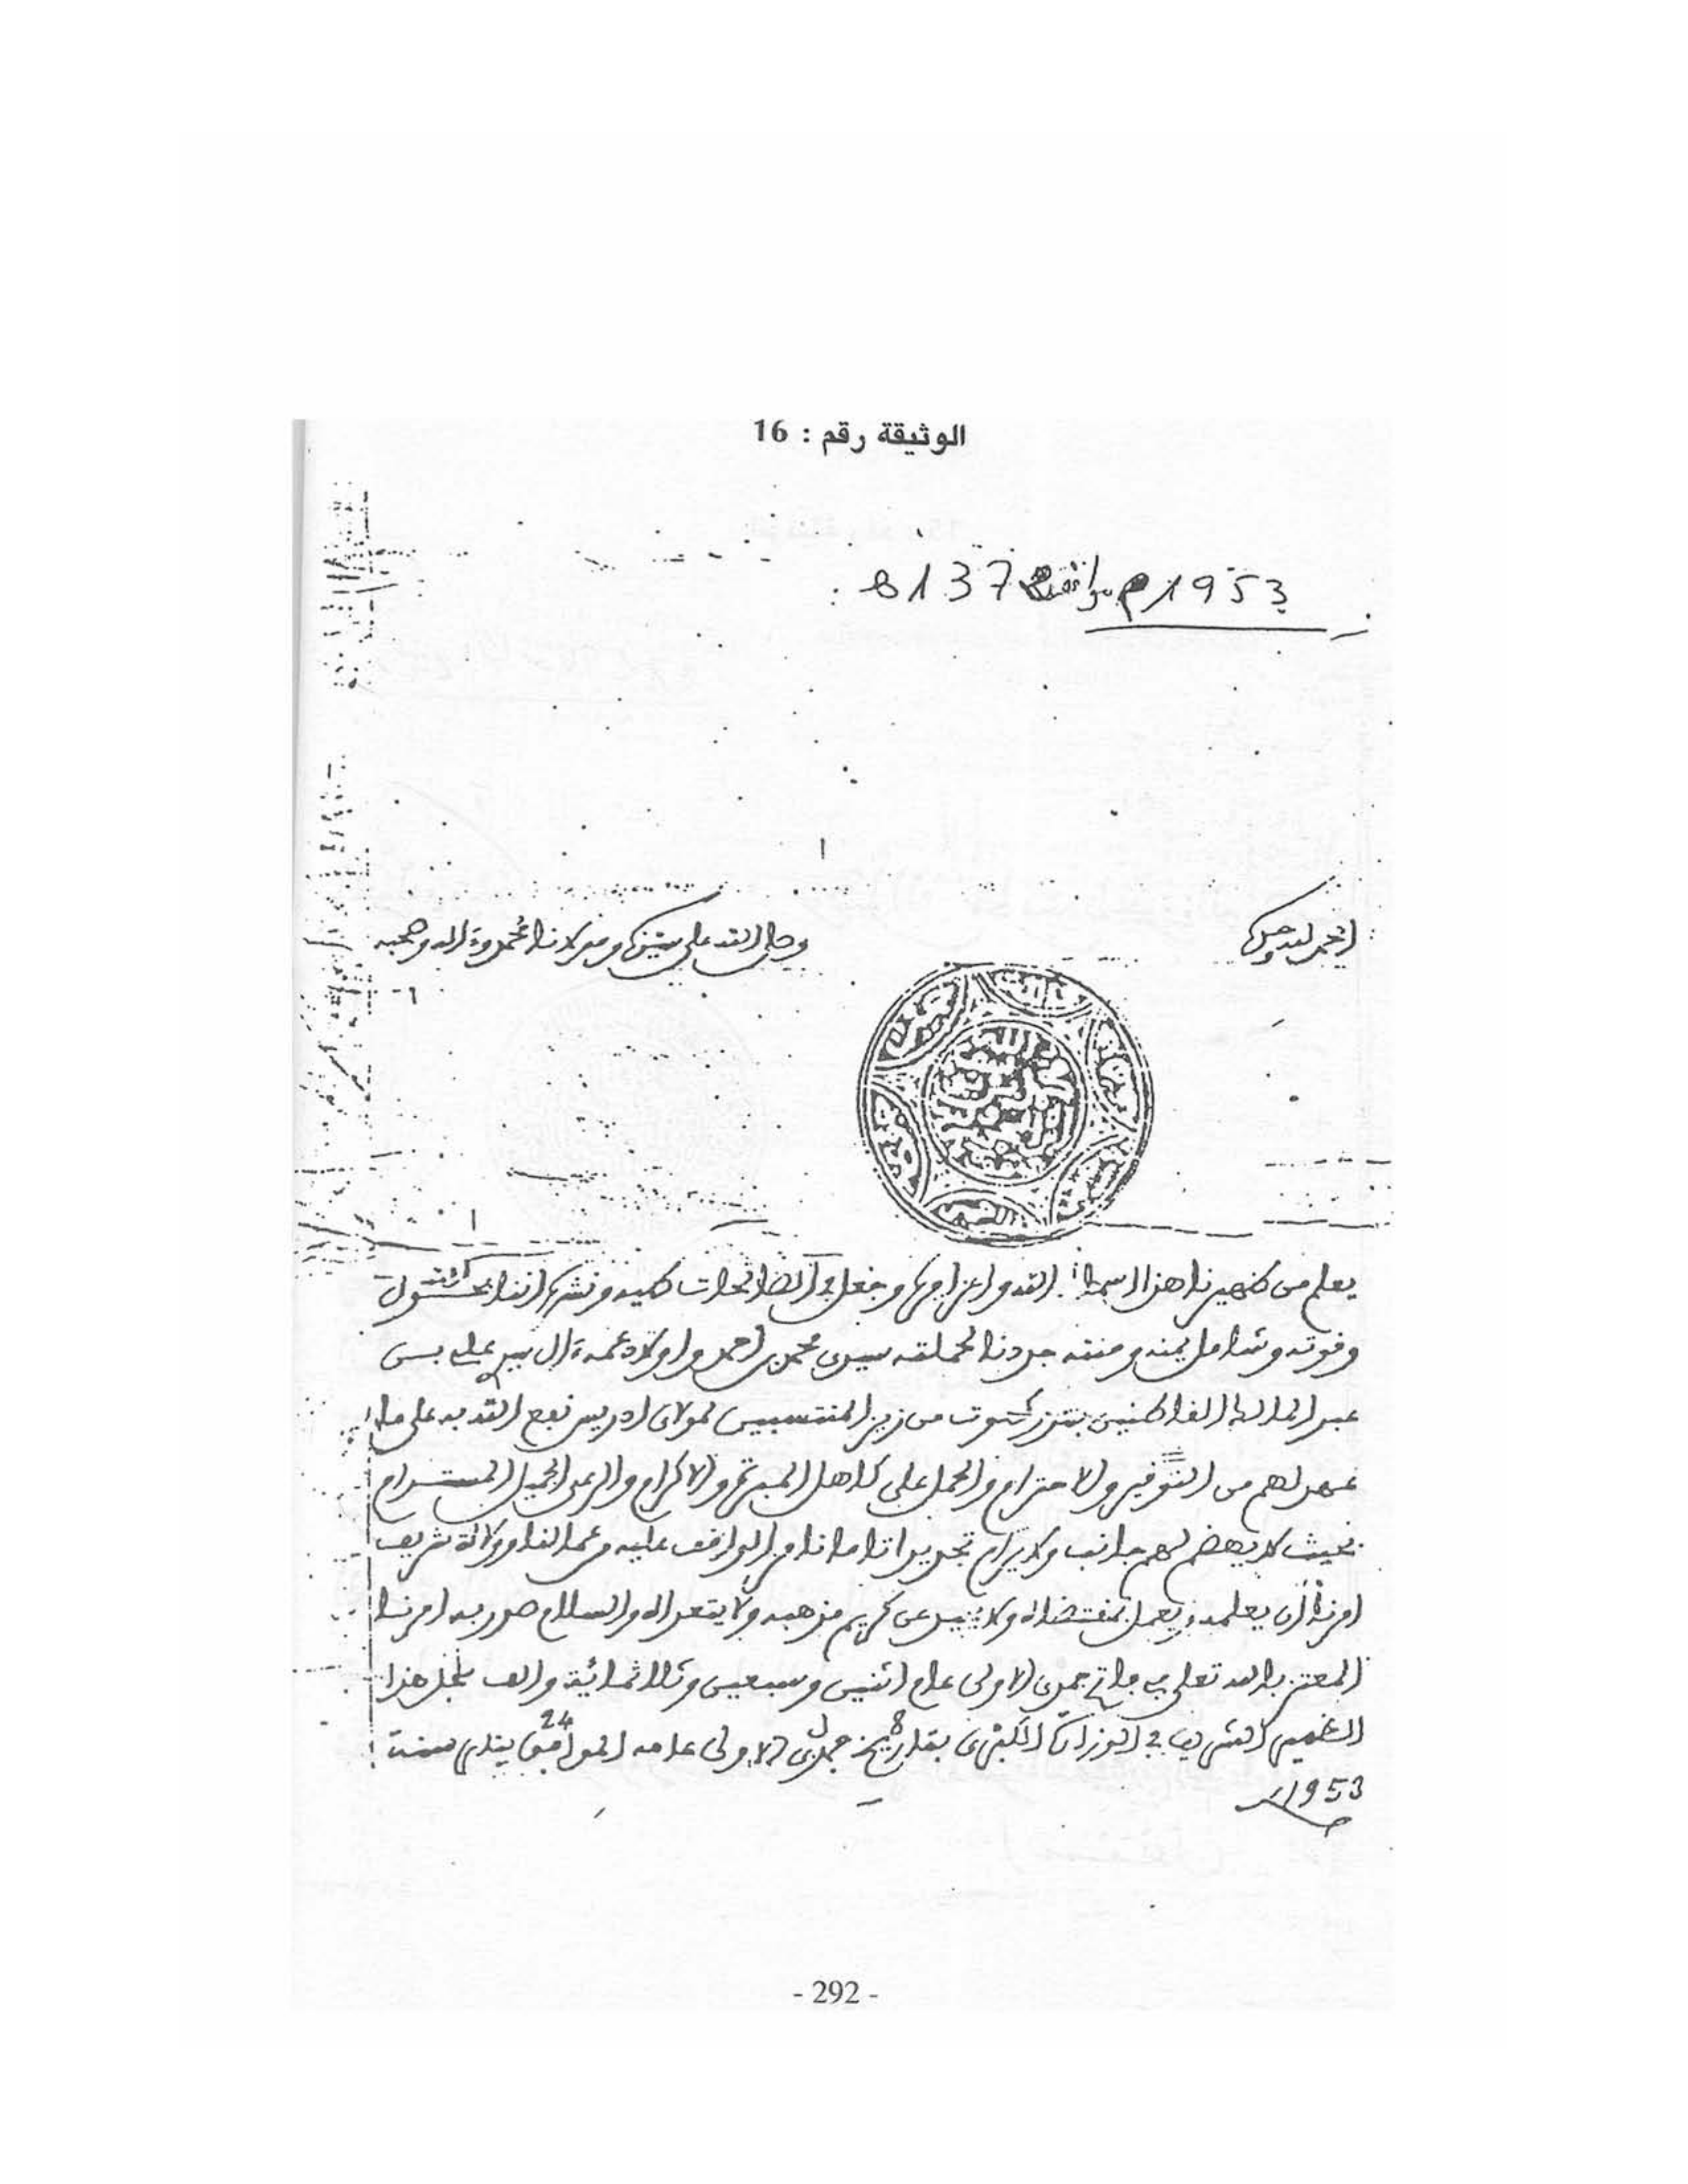 الوثيقة رقم : 16
1953م موافق 1372ه :
الحمد لله وحده
وصلى الله على سيدنا ومولانا محمد وآله وصحبه
يعلم من ظهيرنا هذا اسماه الله وأعز أمره وجعل في الصالحات طيه ونشره أننا بحول الله
وقوته وشامل يمنه ومنته جددنا لحملته سيدي محمد بن احمد واولاد عمه آل سيدي علي بن
عبد المالك القاطنين من زيز المنتسبين لمولاي ادريس نفع الله به على ما
عهد لهم من التوقير والاحترام والحمل على كاهل المبرة والاكرام والرعي الجميل المستدام
بحيث لا يهضم لهم جانب ولا يرام تجديدا تاما نامر الواقف عليه من عمالنا وولاة شريف
امرنا أن يعلمه ويعمل بمقتضاه ولا يحيد عن كريم مذهبه ولا يتعداه والسلام صدر به امرنا
المعتز بالله تعالى في فاتح جمدى الاولى عام اثنين وسبعين وثلاثمائة والف سجل هذا
الظهير الشريف في الوزارة الكبرى بتاريخ 8 جمدى الاولى عامه الموافق 24 يناير سنة
1953
- 292 -